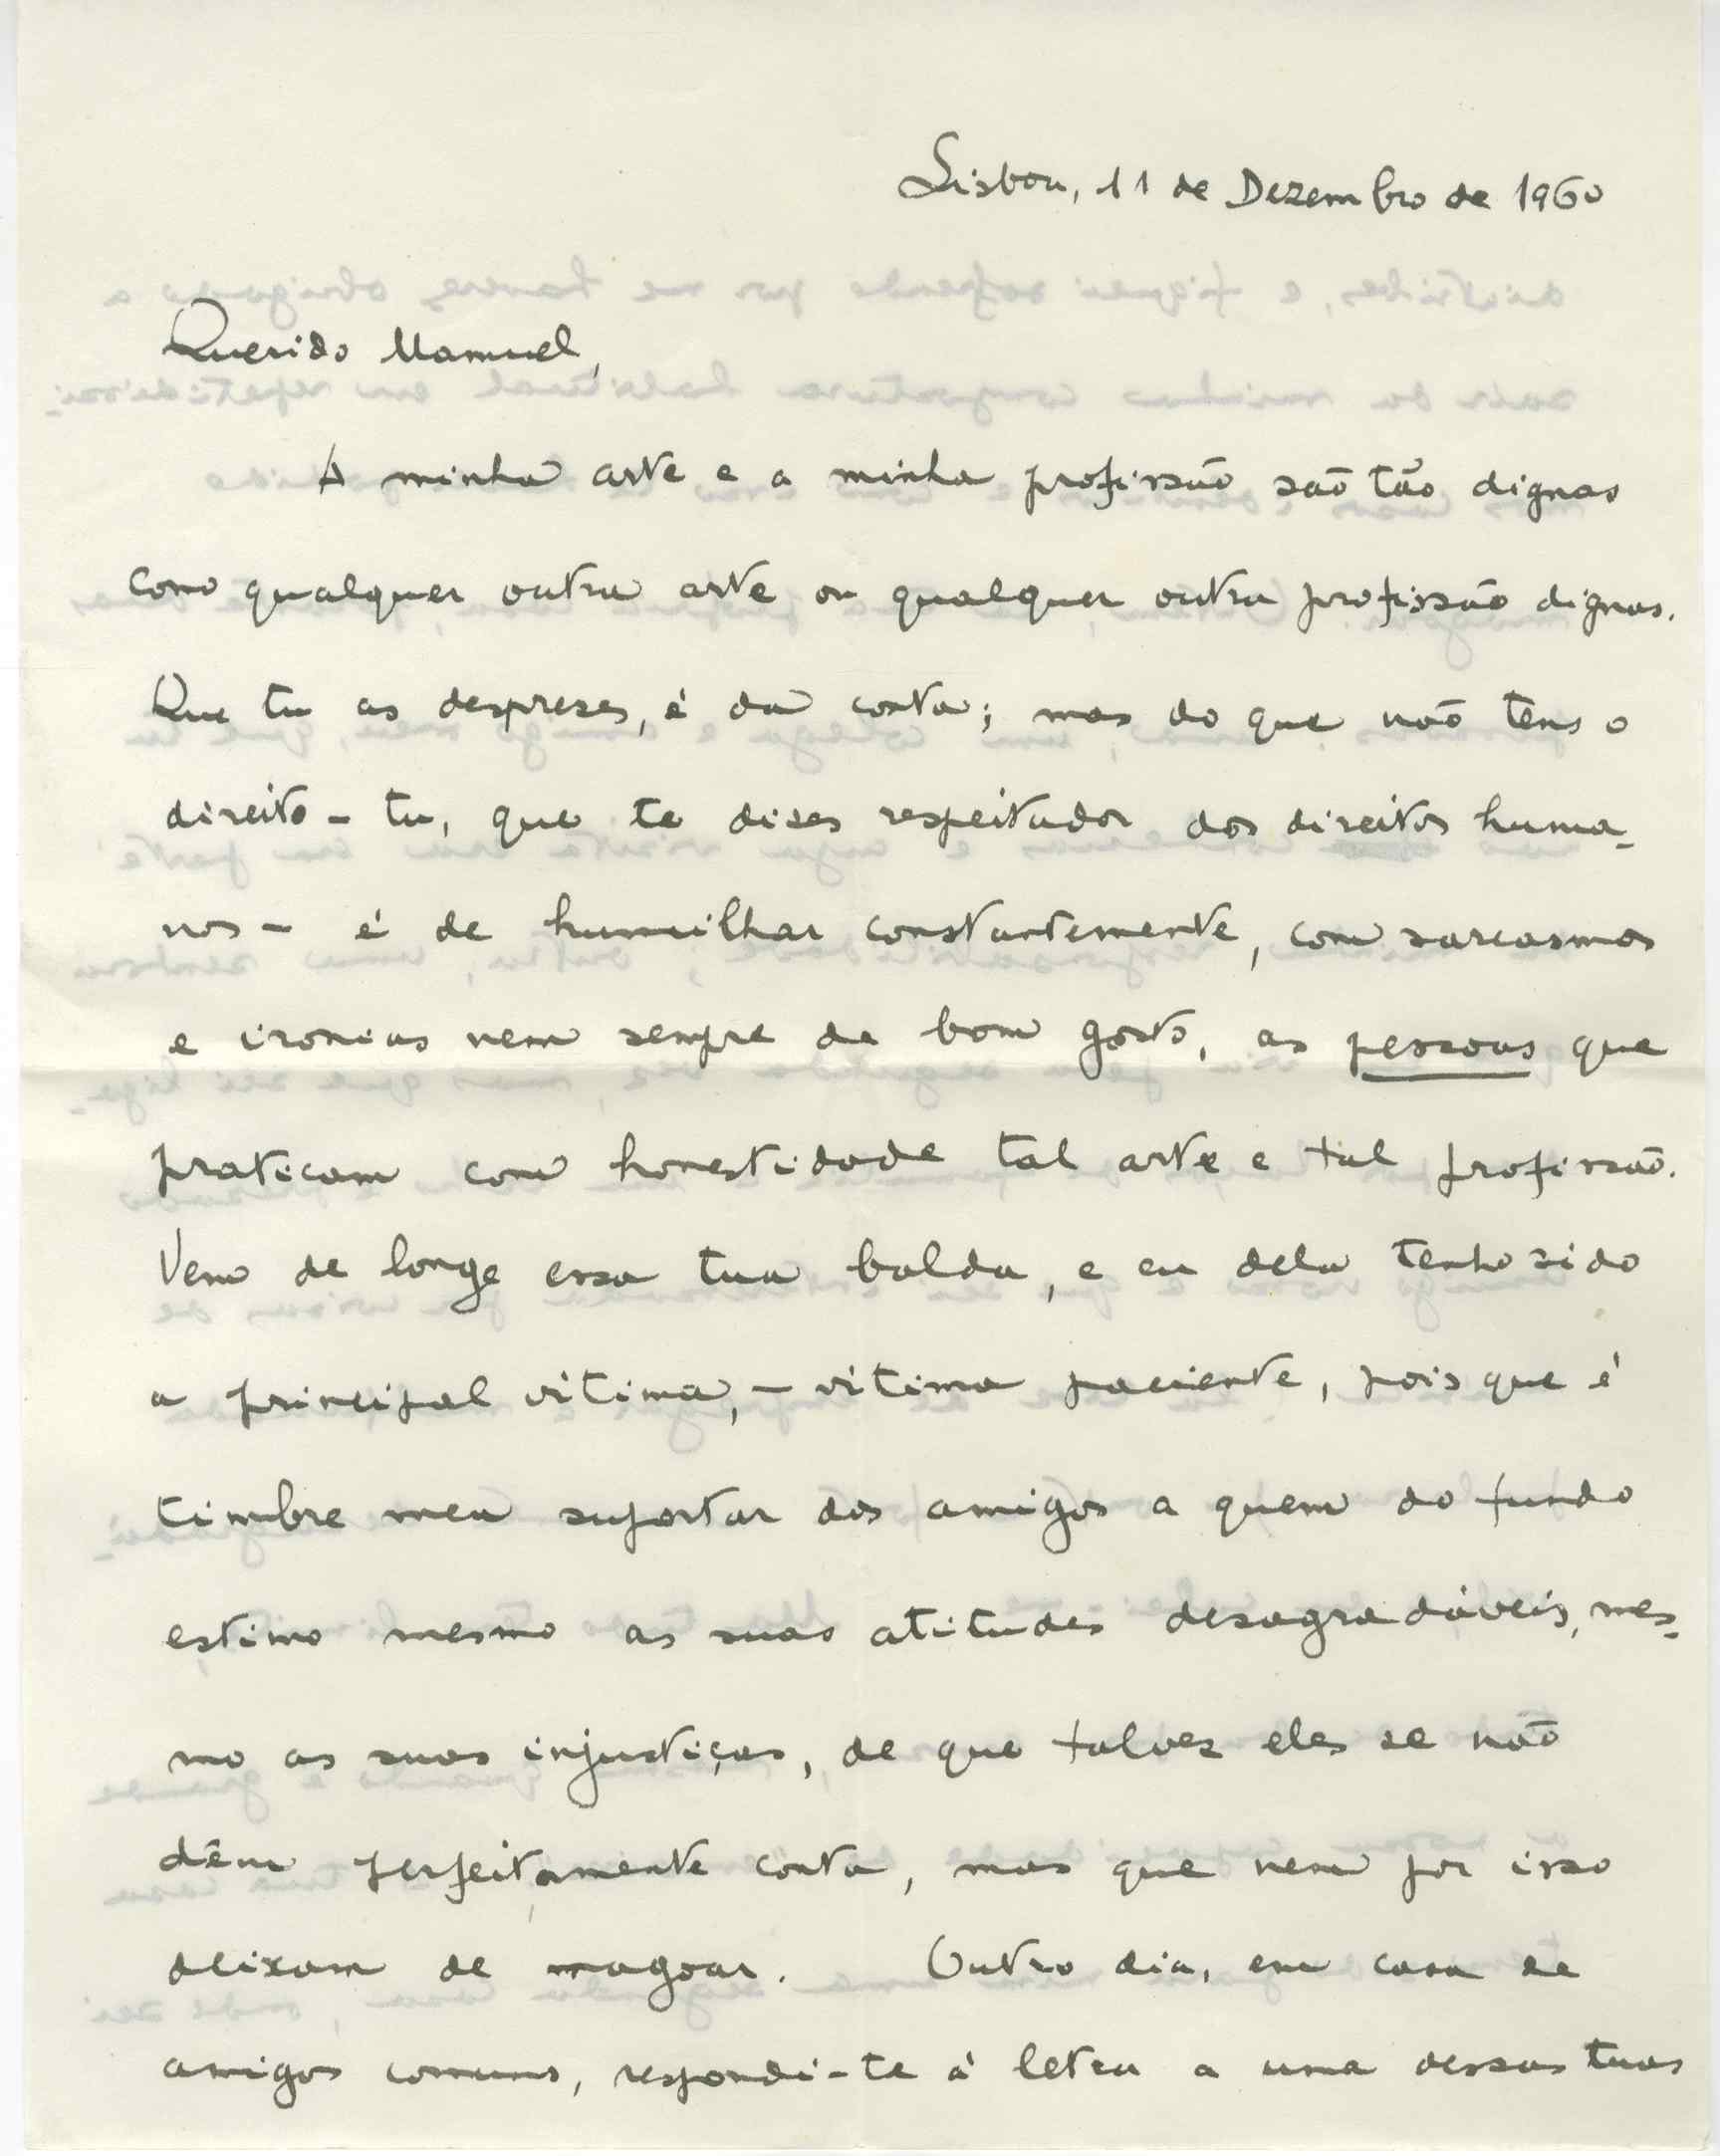 Lisboa, 11 de Dezembro de 1960
Querido Manuel,
A minha arte e a minha profissão são tão dignas
como qualquer outra arte ou qualquer outra profissão dignas.
Que tu as despreses, é da conta; mas do que não tens o
direito - tu, que te dizes respeitador dos direitos huma-
nos - é de humilhar constantemente, com sarcasmos
e ironias nem sempre de bom gosto, as pessoas que
praticam com honestidade tal arte e tal profissão.
Vem de longe essa tua balda, e eu dela tenho sido
a principal vítima, - vítima paciente, pois que é
timbre meu suportar dos amigos a quem do fundo
estimo mesmo as suas atitudes desagradáveis, mes-
mo as suas injustiças, de que talvez eles se não
dêm perfeitamente conta, mas que nem por isso
deixam de magoar. Outro dia, em casa de
amigos comuns, respondi-te à letra a uma dessas tuas